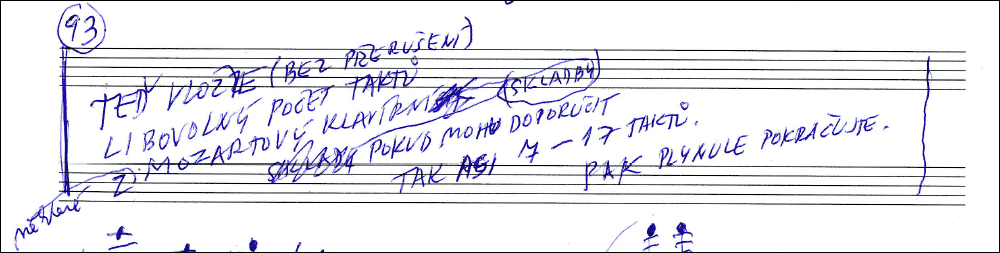 93
TEĎ VLOŽTE (BEZ PŘERUŠENÍ)
LIBOVOLNÝ POČET TAKTŮ
Z některé MOZARTOVY KLAVÍRNÍ (SKLADBY)
POKUD MOHU DOPORUČIT
TAK ASI 7-17 TAKTŮ.
PAK PLYNULE POKRAČUJTE.